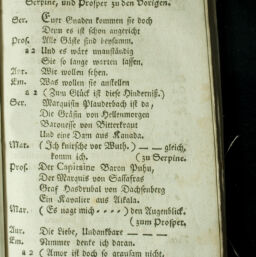 Serpine, und Prosper zu den Vorigen.
Ser. Eure Gnaden kommen sie doch
Denn es ist schon angericht
Pros. Alle Gäste sind beysamm.
a 2 Und es wäre unanständig
Sie so lange warten lassen.
Aur. Wir wollen sehen.
Em. Was wollen sie anstellen
a 2 (Zum Glück ist diese Hinderniß.)
Ser. Marquisin Plauderbach ist da,
Die Gräfin von Hellenmorgen
Baronesse von Bitterkraut
Und eine Dam aus Kanada.
Mar. (Ich knirsche vor Wuth.) — — gleich,
komm ich. (zu Serpine.
Pros. Der Capitaine Baron Puhu,
Der Marquis von Sassafras
Graf Hasdrubal von Dachsenberg
Ein Kavalier aus Aikala.
Mar. (Es nagt mich - - - -) den Augenblick.
(zum Prosper.
Aur. Die Liebe, Undankbare — — —
Em. Nimmer denke ich daran.
a 2 (Amor ist doch so grausam nicht.